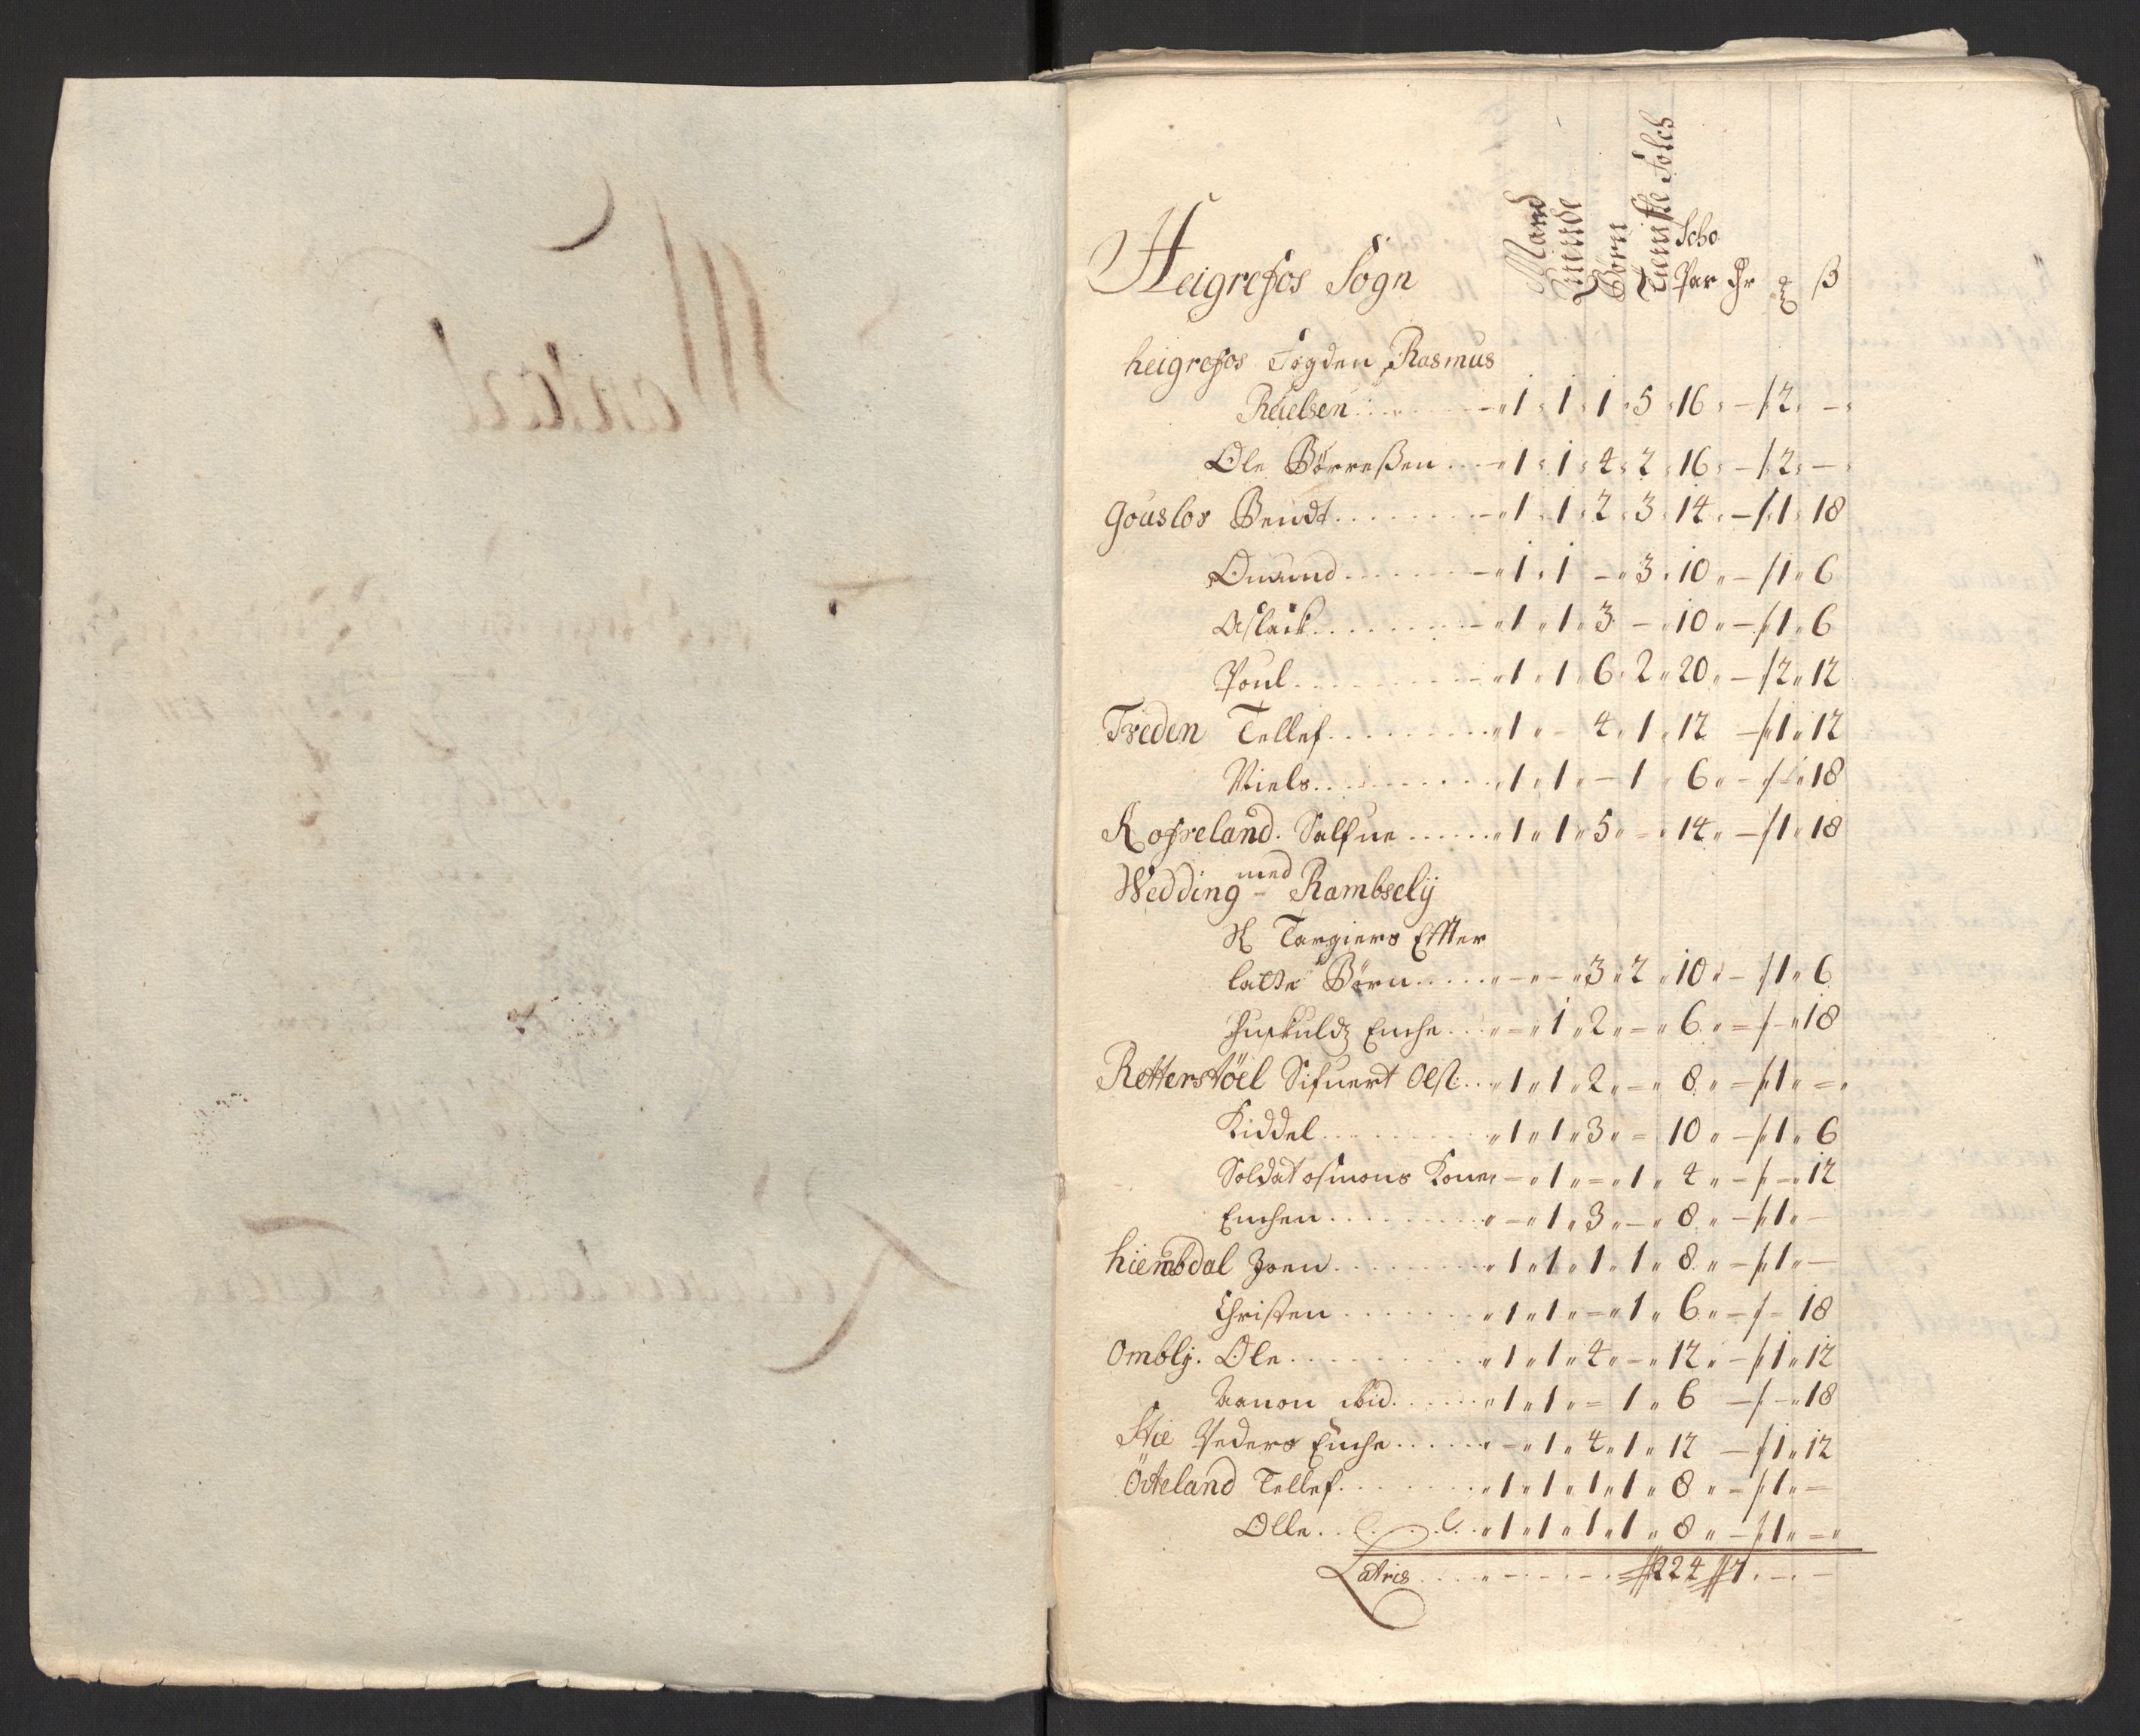 Mand
Quinde
Börn
Tieniste Folch
Scho
Heigrefos Sogn Par ß
heigrefos Fogden Rasmus
Reielsen 1 1 1 5 16 – 2 –
Ole Börreßen 1 1 4 2 16 – 2 –
Gouslos Bendt 1 1 2 3 14 – 1 18
Onnund 1 1 – 3 10 – 1 6
Aslack 1 1 3 – 10 – 1 6
Poul 1 1 6 2 20 – 2 12
Treden Tellef 1 – 4 1 12 – 1 12
Niels 1 1 – 1 6 – – 18
Kosreland Salfue 1 1 5 – 14 – 1 18
Wedding med Rambselij
H Targiers Effter
latte Börn – – 3 2 10 – 1 6
Huskuldz Enche – 1 2 – 6 – – 18
Retterstöel Sifuert Olß 1 1 2 – 8 – 1 –
Kiddel 1 1 3 – 10 – 1 6
Soldat osmons Kone – 1 – 1 4 – – 12
Enchen – 1 3 – 8 – 1 –
hiembdal Joen 1 1 1 1 8 – 1 –
Christen 1 1 – 1 6 – – 18
Omblij. Ole 1 1 4 – 12 – 1 12
Aanon ibid 1 1 – 1 6 – – 18
Stie Peders Enche – 1 4 1 12 – 1 12
Öiteland Tellef 1 1 1 1 8 – 1 –
Olle 1 1 1 1 8 – 1 –
Latris 224